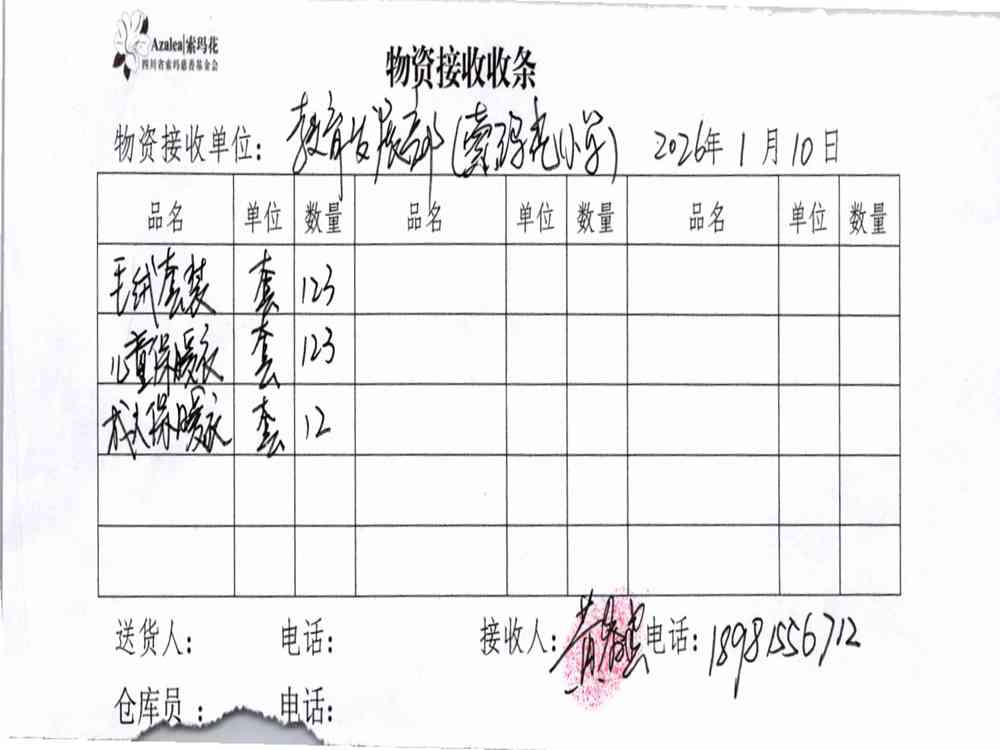 Azalea|索玛花
四川省索玛慈善基金会
物资接收收条
物资接收单位：教育发展部（索玛花小学） 2026年1月10日
品名 单位 数量 品名 单位 数量 品名 单位 数量
毛绒套装 套 123
儿童保暖衣 套 123
成人保暖衣 套 12
送货人： 电话： 接收人：黄 电话：18981556712
仓库员： 电话：